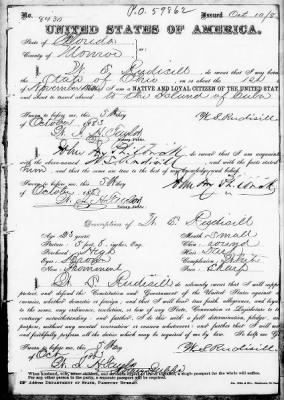 P.O. 59862
No. 8430 Issued Oct 10/8
UNITED STATES OF AMERICA.
State of Florida
County of Monroe
I, W. S. Rudisill, do swear that I was born
State of Ohio, on or about the 1st
of November; that I am a NATIVE AND LOYAL CITIZEN OF THE UNITED STAT
and about to travel abroad to the Island of Cuba
W S Rudisill
Sworn to before me, this 5th day
of October, 188
Notary Public.
I, John, do swear that I am acquainte
with the above-named, and with the facts stated
him, and that the same are true to the best of my knowledge and belief.
Sworn to before me, this 5th day
of October, 188
Notary Public.
Description of W. S. Rudisill
Age: 23 years Mouth: Small
Stature: 5 feet 8 inches, Eng. Chin: round
Forehead: High Hair: Dark
Eyes: Complexion: White
Nose: Prominent Face: Sharp
I, W. S. Rudisill, do solemnly swear that I will supp
protect, and defend the Constitution and Government of the United States against
enemies, whether domestic or foreign; and that I will bear true faith, allegiance, and loya
to the same, any ordinance, resolution, or law of any State, Convention or Legislature to th
contrary notwithstanding; and further, that I do this with a full determination, pledge, an
purpose, without any mental reservation or evasion whatsoever; and further that I will well
and faithfully perform all the duties which may be required of me by law. So help me Go
W. S. Rudisill
Sworn to before me, this 5 day
of Oct
Notary Public
When husband, wife, minor children, and servants expect to travel together, a single passport for the whole will suffice.
For any other person in the party, a separate passport will be required.
Address DEPARTMENT OF STATE, PASSPORT BUREAU.